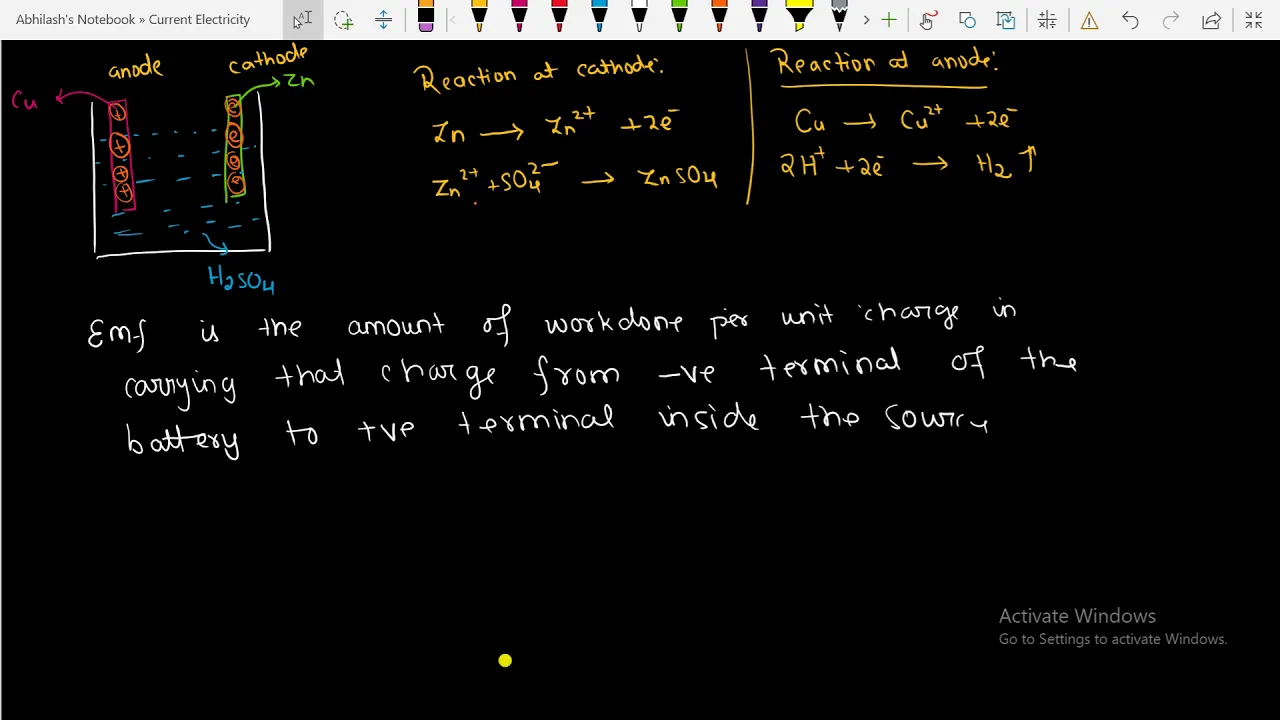 Abhilash's Notebook » Current Electricity
anode
cathode
Cu
Zn
H₂SO₄
Reaction at cathode:
Zn → Zn²⁺ + 2e⁻
Zn²⁺ + SO₄²⁻ → ZnSO₄
Reaction at anode:
Cu → Cu²⁺ + 2e⁻
2H⁺ + 2e⁻ → H₂ ↑
Emf is the amount of workdone per unit charge in
carrying that charge from -ve terminal of the
battery to +ve terminal inside the source
Activate Windows
Go to Settings to activate Windows.